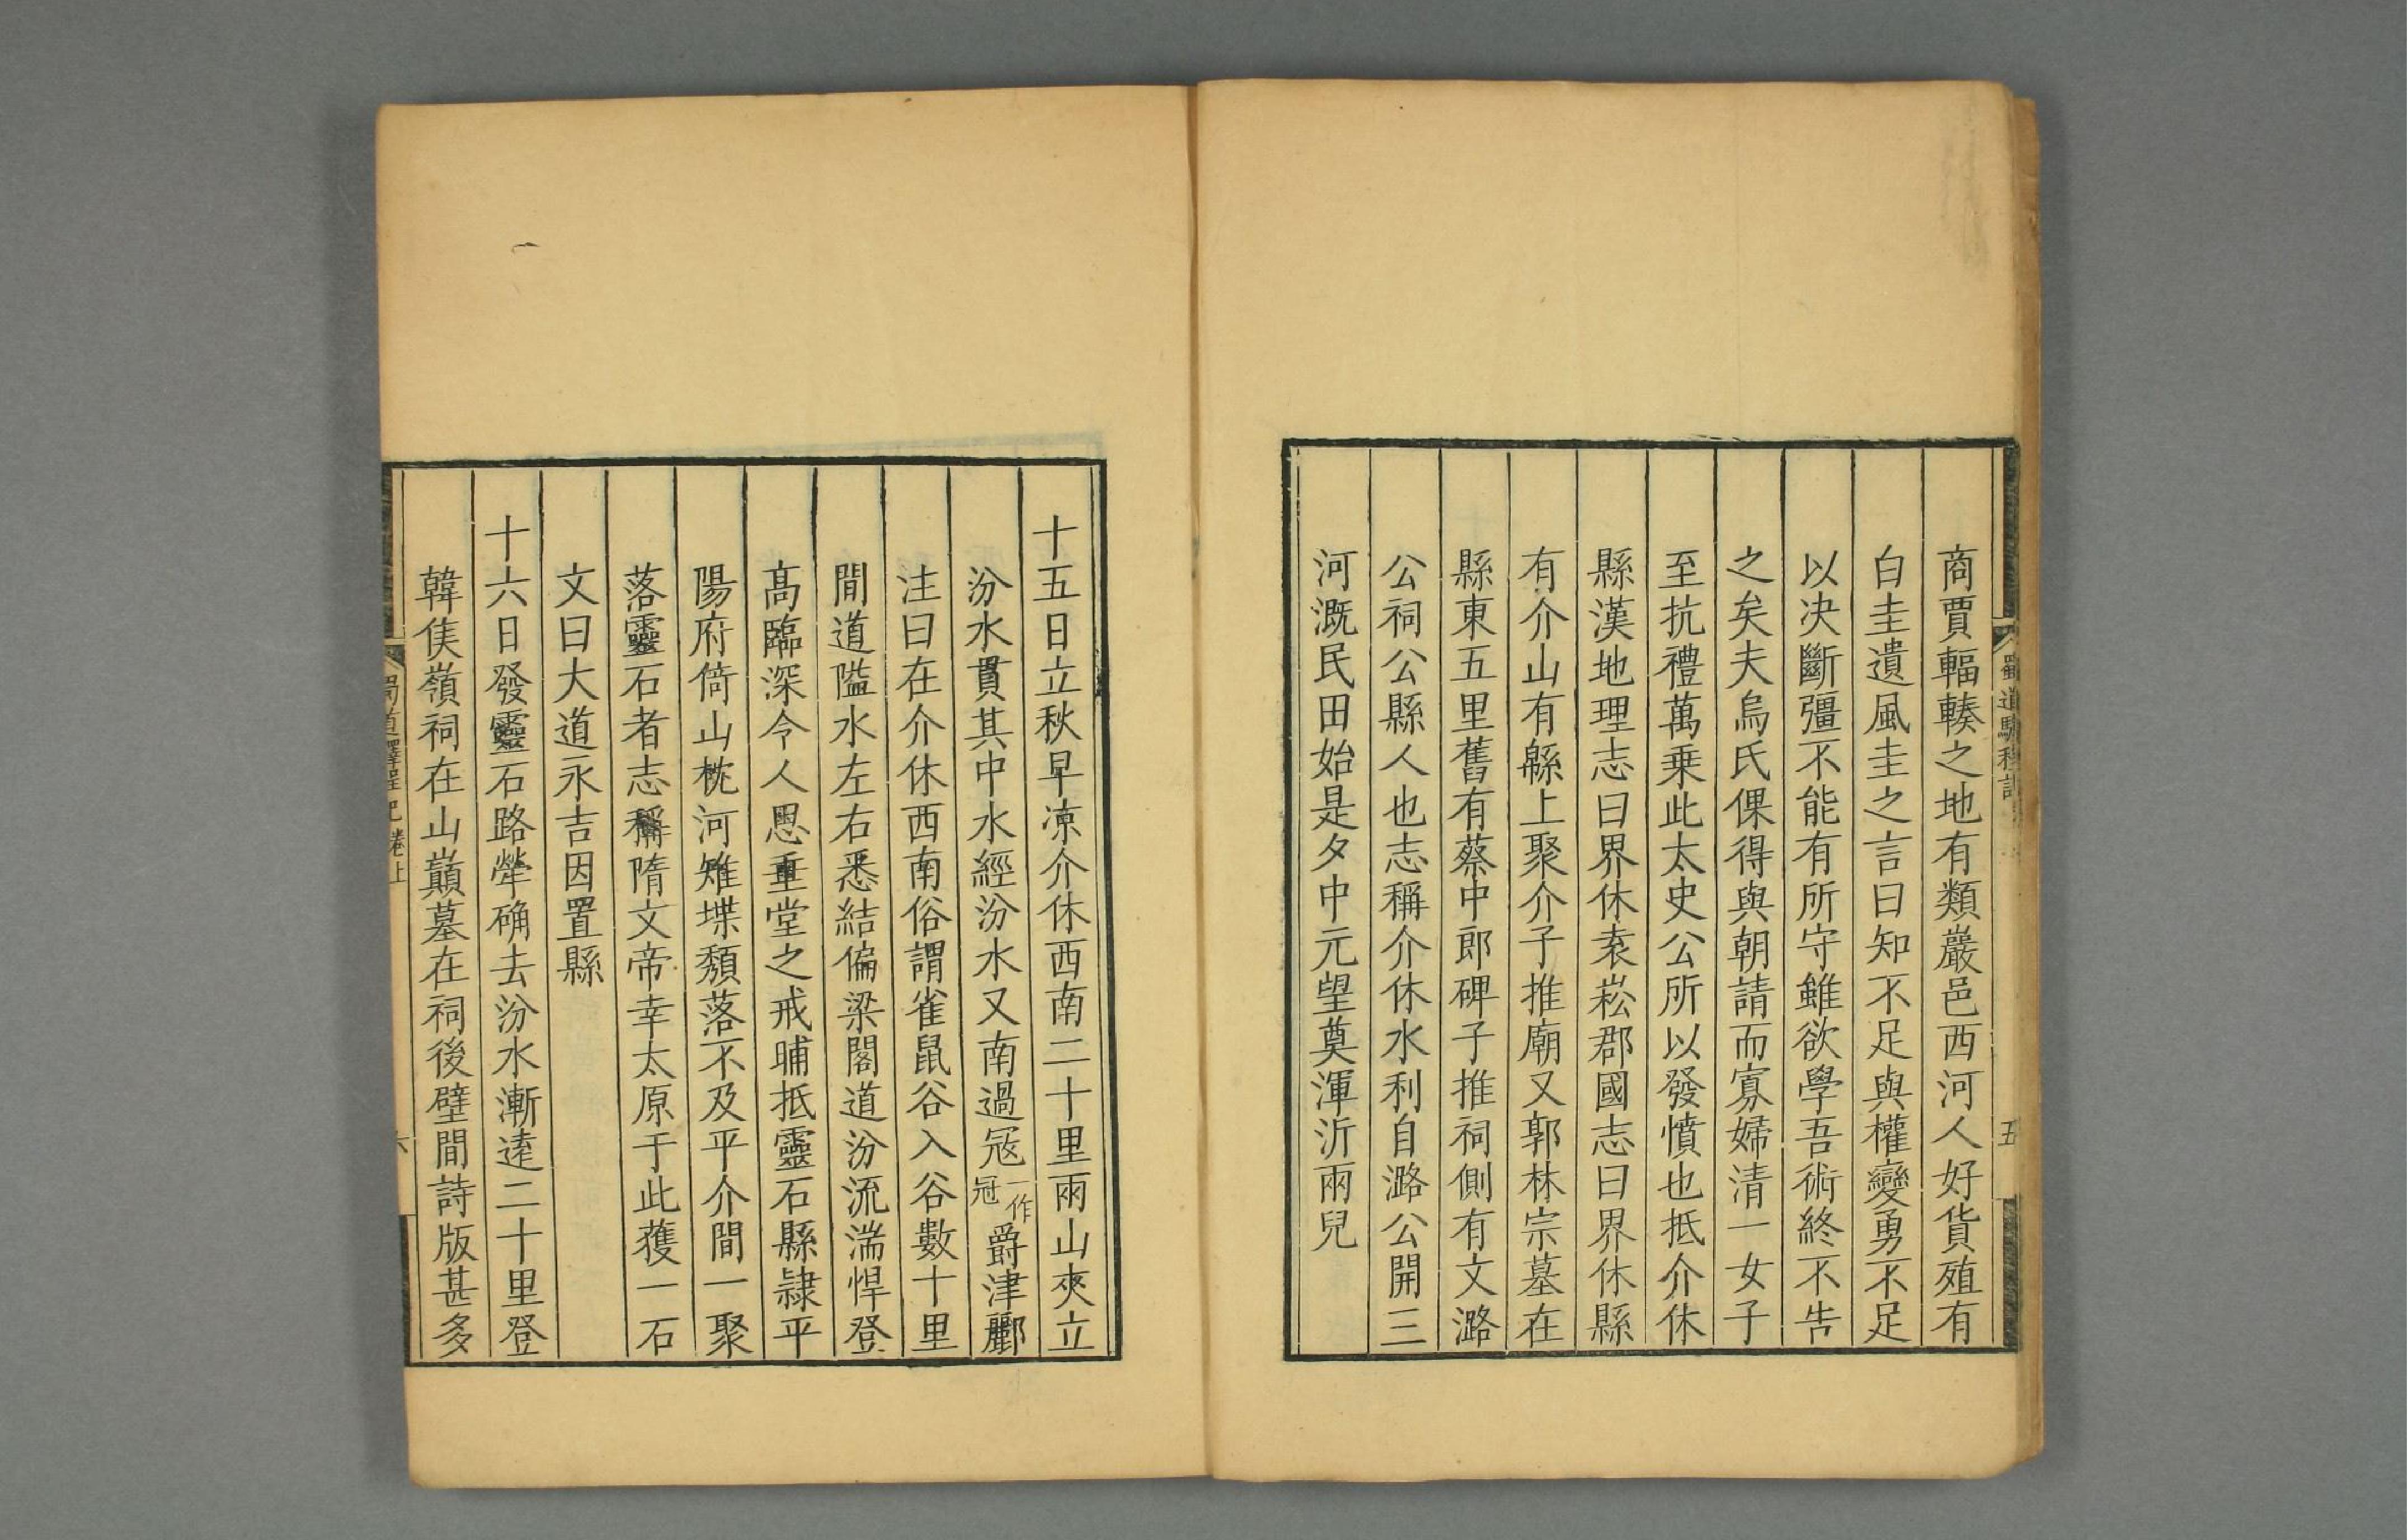 蜀道驛程記
五
商賈輻輳之地有類巖邑西河人好貨殖有
白圭遺風圭之言曰知不足與權變勇不足
以决斷彊不能有所守雖欲學吾術終不告
之矣夫烏氏倮得與朝請而寡婦清一女子
至抗禮萬乗此太史公所以發憤也抵介休
縣漢地理志曰界休袁崧郡國志曰界休縣
有介山有緜上聚介子推廟又郭林宗墓在
縣東五里舊有蔡中郎碑子推祠側有文潞
公祠公縣人也志稱介休水利自潞公開三
河溉民田始是夕中元望奠渾沂兩兒
十五日立秋早凉介休西南二十里兩山夾立
汾水貫其中水經汾水又南過冦一作冠爵津酈
注曰在介休西南俗謂雀鼠谷入谷數十里
間道隘水左右悉結偏梁閣道汾流湍悍登
高臨深令人思垂堂之戒晡抵靈石縣隷平
陽府倚山枕河雉堞頽落不及平介間一聚
落靈石者志稱隋文帝幸太原于此獲一石
文曰大道永吉因置縣
十六日發靈石路犖确去汾水漸逺二十里登
韓侯嶺祠在山巔墓在祠後壁間詩版甚多
蜀道驛程記卷上
六